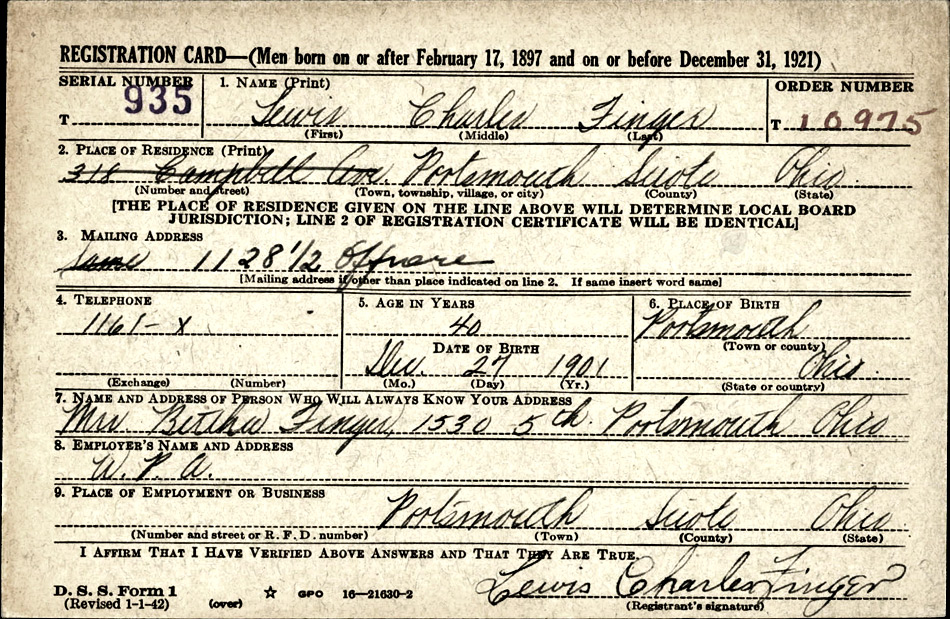 REGISTRATION CARD—(Men born on or after February 17, 1897 and on or before December 31, 1921)
SERIAL NUMBER 1. NAME (Print) ORDER NUMBER
T 935 Lewis Charles Finger T 10975
(First) (Middle) (Last)
2. PLACE OF RESIDENCE (Print)
318 Campbell Ave. Portsmouth Sioto Ohio
(Number and street) (Town, township, village, or city) (County) (State)
[THE PLACE OF RESIDENCE GIVEN ON THE LINE ABOVE WILL DETERMINE LOCAL BOARD
JURISDICTION; LINE 2 OF REGISTRATION CERTIFICATE WILL BE IDENTICAL]
3. MAILING ADDRESS
Same 1128 1/2 Offnere
[Mailing address if other than place indicated on line 2. If same insert word same]
4. TELEPHONE 5. AGE IN YEARS 6. PLACE OF BIRTH
1161-X 40 Portsmouth
DATE OF BIRTH (Town or county)
Dec. 27 1901 Ohio.
(Exchange) (Number) (Mo.) (Day) (Yr.) (State or country)
7. NAME AND ADDRESS OF PERSON WHO WILL ALWAYS KNOW YOUR ADDRESS
Mrs Finger, 1530 5th. Portsmouth Ohio
8. EMPLOYER'S NAME AND ADDRESS
W. P. A.
9. PLACE OF EMPLOYMENT OR BUSINESS
Portsmouth Sioto Ohio
(Number and street or R. F. D. number) (Town) (County) (State)
I AFFIRM THAT I HAVE VERIFIED ABOVE ANSWERS AND THAT THEY ARE TRUE.
D. S. S. Form 1 Lewis Charles Finger
(Revised 1-1-42) (over) ☆ GPO 16—21630-2 (Registrant's signature)